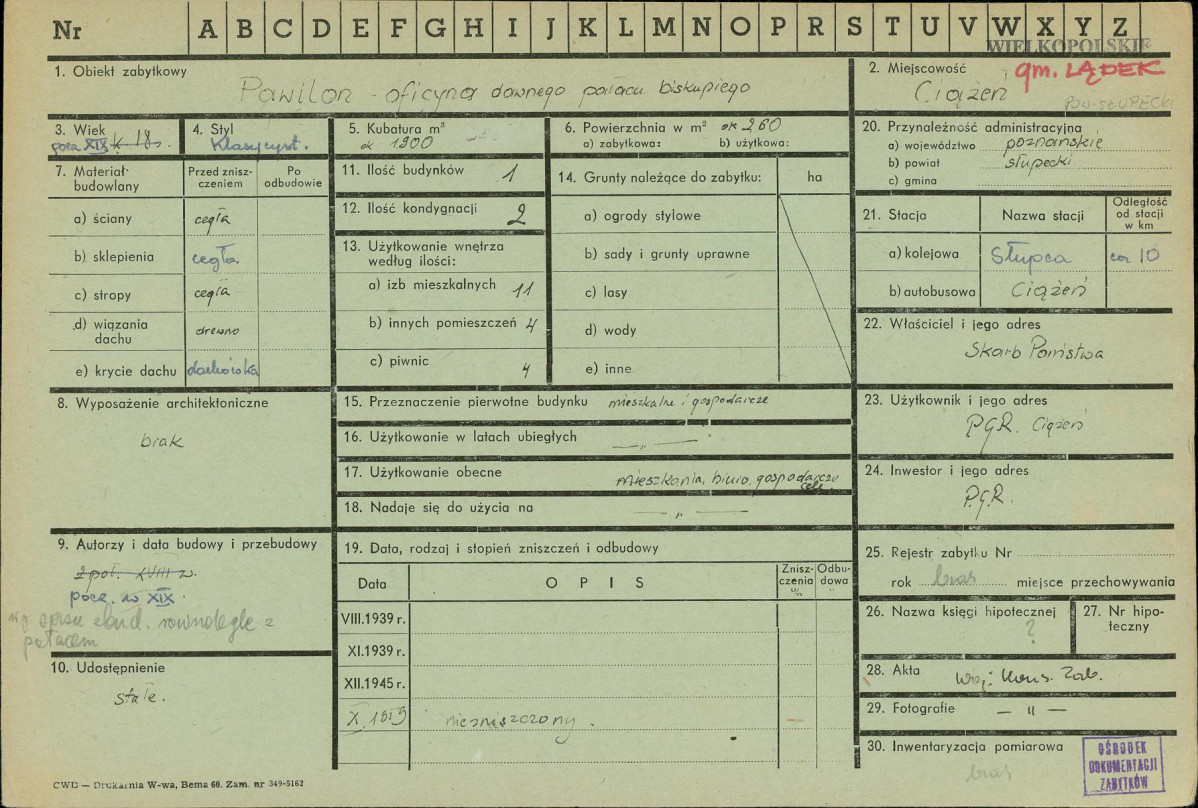 Nr A B C D E F G H I J K L M N O P R S T U V W X Y Z
WIELKOPOLSKIE
1. Obiekt zabytkowy
Pawilon - oficyna dawnego pałacu biskupiego
2. Miejscowość
gm. LĄDEK
Ciążeń
POW-SŁUPECKI
3. Wiek
pocz XIX k 18 w.
4. Styl
Klasycyst.
5. Kubatura m³
ok 1900
6. Powierzchnia w m² ok 260
a) zabytkowa: b) użytkowa:
7. Materiał budowlany
Przed zniszczeniem
Po odbudowie
a) ściany cegła
b) sklepienia cegła
c) stropy cegła
d) wiązania dachu drewno
e) krycie dachu dachówka
8. Wyposażenie architektoniczne
brak
9. Autorzy i data budowy i przebudowy
2 poł. XVIII w.
pocz. w XIX.
wg opisu zbud. równolegle z
pałacem
10. Udostępnienie
stałe.
11. Ilość budynków 1
12. Ilość kondygnacji 2
13. Użytkowanie wnętrza
według ilości:
a) izb mieszkalnych 11
b) innych pomieszczeń 4
c) piwnic 4
14. Grunty należące do zabytku: ha
a) ogrody stylowe
b) sady i grunty uprawne
c) lasy
d) wody
e) inne
15. Przeznaczenie pierwotne budynku mieszkalne i gospodarcze
16. Użytkowanie w latach ubiegłych — „ —
17. Użytkowanie obecne mieszkania, biuro, gospodarcze
cele
18. Nadaje się do użycia na — „ —
19. Data, rodzaj i stopień zniszczeń i odbudowy
Data OPIS Zniszczenia % Odbudowa "
VIII.1939 r.
XI.1939 r.
XII.1945 r.
X.1959 niezniszczony. —
20. Przynależność administracyjna
a) województwo poznańskie
b) powiat słupecki
c) gmina
21. Stacja Nazwa stacji Odległość od stacji w km
a) kolejowa Słupca ca 10
b) autobusowa Ciążeń
22. Właściciel i jego adres
Skarb Państwa
23. Użytkownik i jego adres
P.G.R. Ciążeń
24. Inwestor i jego adres
P.G.R.
25. Rejestr zabytku Nr
rok brak miejsce przechowywania
26. Nazwa księgi hipotecznej
?
27. Nr hipoteczny
28. Akta Woj. Kons. Zab.
29. Fotografie — " —
30. Inwentaryzacja pomiarowa
brak
OŚRODEK
DOKUMENTACJI
ZABYTKÓW
CWD — Drukarnia W-wa, Bema 60. Zam. nr 349-5162